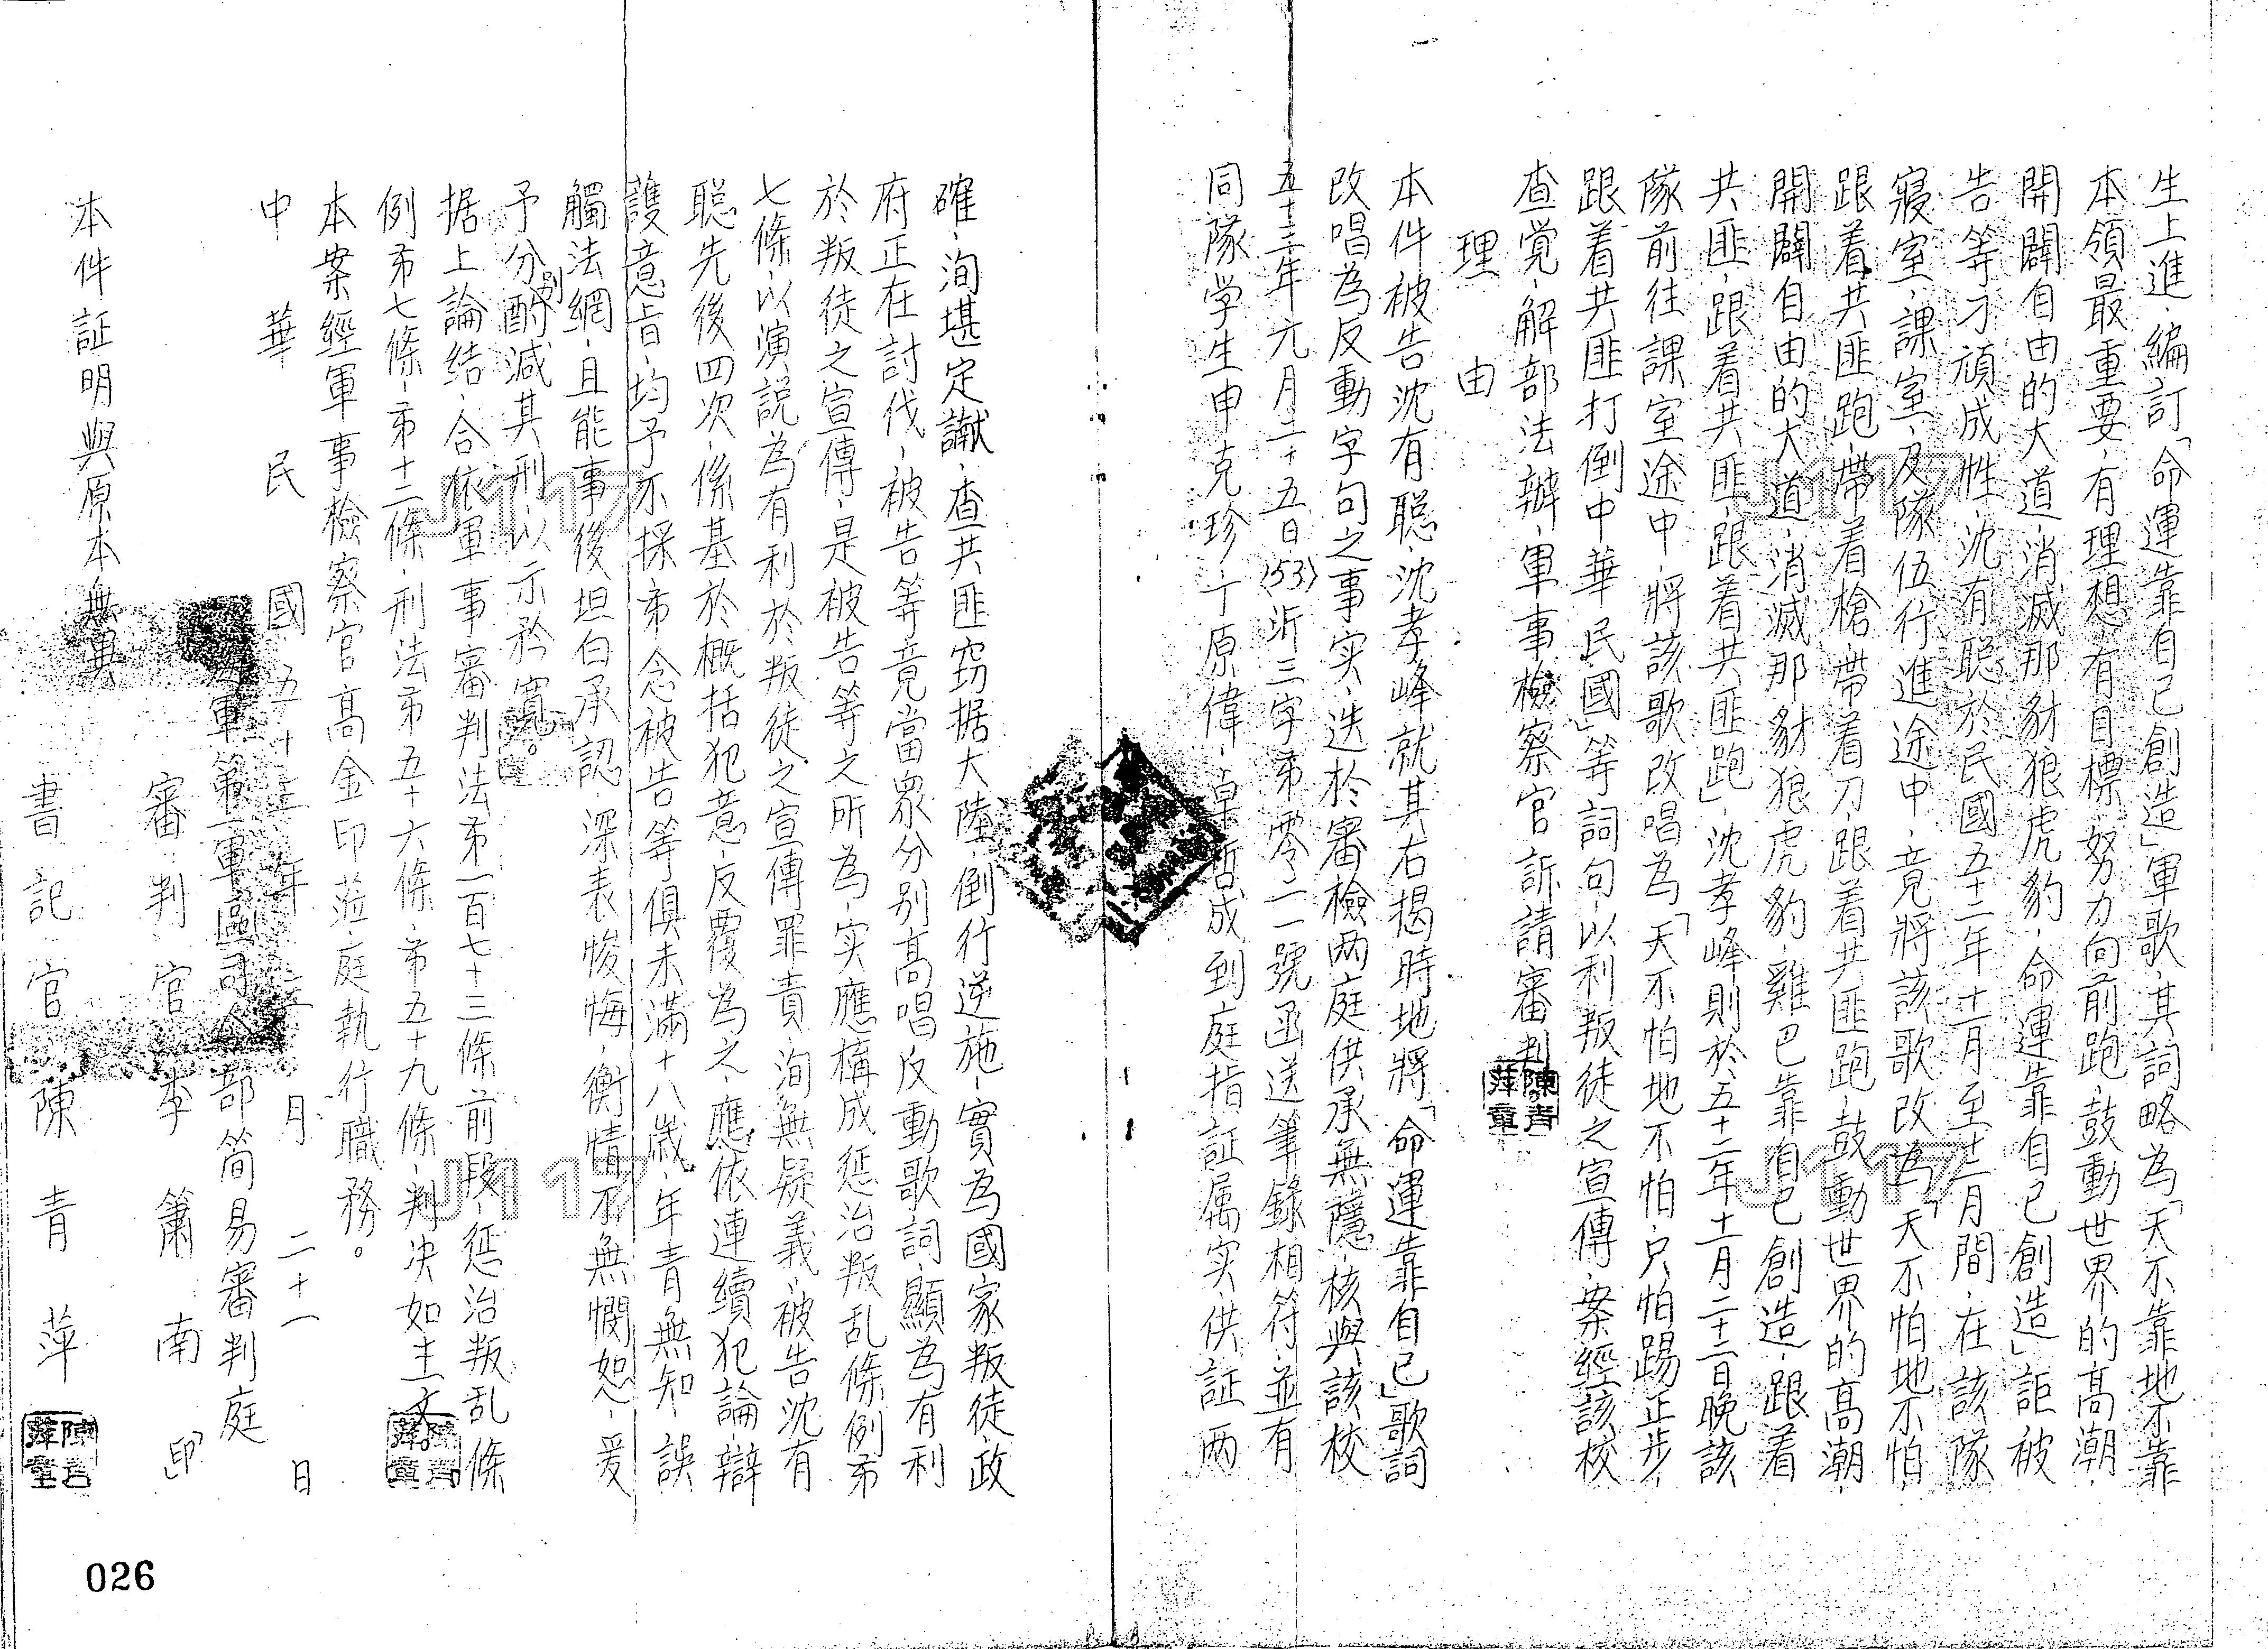 生上進，編訂「命運靠自己創造」軍歌，其詞略為「天不靠地不靠
本領最重要，有理想有目標，努力向前跑，鼓動世界的高潮，
開闢自由的大道，消滅那豺狼虎豹，命運靠自己創造」詎被
告等刁頑成性，沈有聰於民國五十二年十一月至十二月間，在該隊
寢室，課室，及隊伍行進途中，竟將該歌改為「天不怕地不怕
跟着共匪跑，帶着槍帶着刀，跟着共匪跑，鼓動世界的高潮，
開闢自由的大道，消滅那豺狼虎豹，雞巴靠自己創造，跟着
共匪，跟着共匪，跟着共匪跑」，沈孝峰則於五十二年十一月二十二日晚該
隊前往課室途中，將該歌改唱為「天不怕地不怕，只怕踢正步，
跟着共匪打倒中華民國」等詞句，以利叛徒之宣傳，案經該校
查覺，解部法辦，軍事檢察官訴請審判。
陳青萍章
理由
本件被告沈有聰，沈孝峰就其右揭時地將「命運靠自己」歌詞
改唱為反動字句之事实，迭於審檢两庭供承無隱，核與該校
五十三年元月二十五日(53)沂三字第零二一號函送筆錄相符，並有
同隊学生申克珍，丁原偉，卓哲成到庭指証属实，供証两
確，洵堪定讞，查共匪窃据大陸，倒行逆施，實為國家叛徒，政
府正在討伐，被告等竟當眾分别高唱反動歌詞，顯為有利
於叛徒之宣傳，是被告等之所為，实應構成惩治叛乱條例第
七條，以演説為有利於叛徒之宣傳罪責，洵無疑義，被告沈有
聪先後四次，係基於概括犯意，反覆為之，應依連續犯論，辯
護意旨，均予不採，第念被告等俱未滿十八歲，年青無知，誤
觸法網，且能事後坦白承認，深表悛悔，衡情不無憫恕，爰
予分别酌減其刑，以示矜寬。
据上論结，合依軍事審判法第一百七十三條前段，惩治叛乱條
例第七條，第十二條，刑法第五十六條，第五十九條，判决如主文。
陳青萍章
本案經軍事檢察官高金印蒞庭執行職務。
中華民國五十三年三月二十一日
陸軍第一軍區司令部簡易審判庭
審判官李簫南「印」
本件証明與原本無異
書記官陳青萍
陳青萍章
J117
J117
J117
J117
026